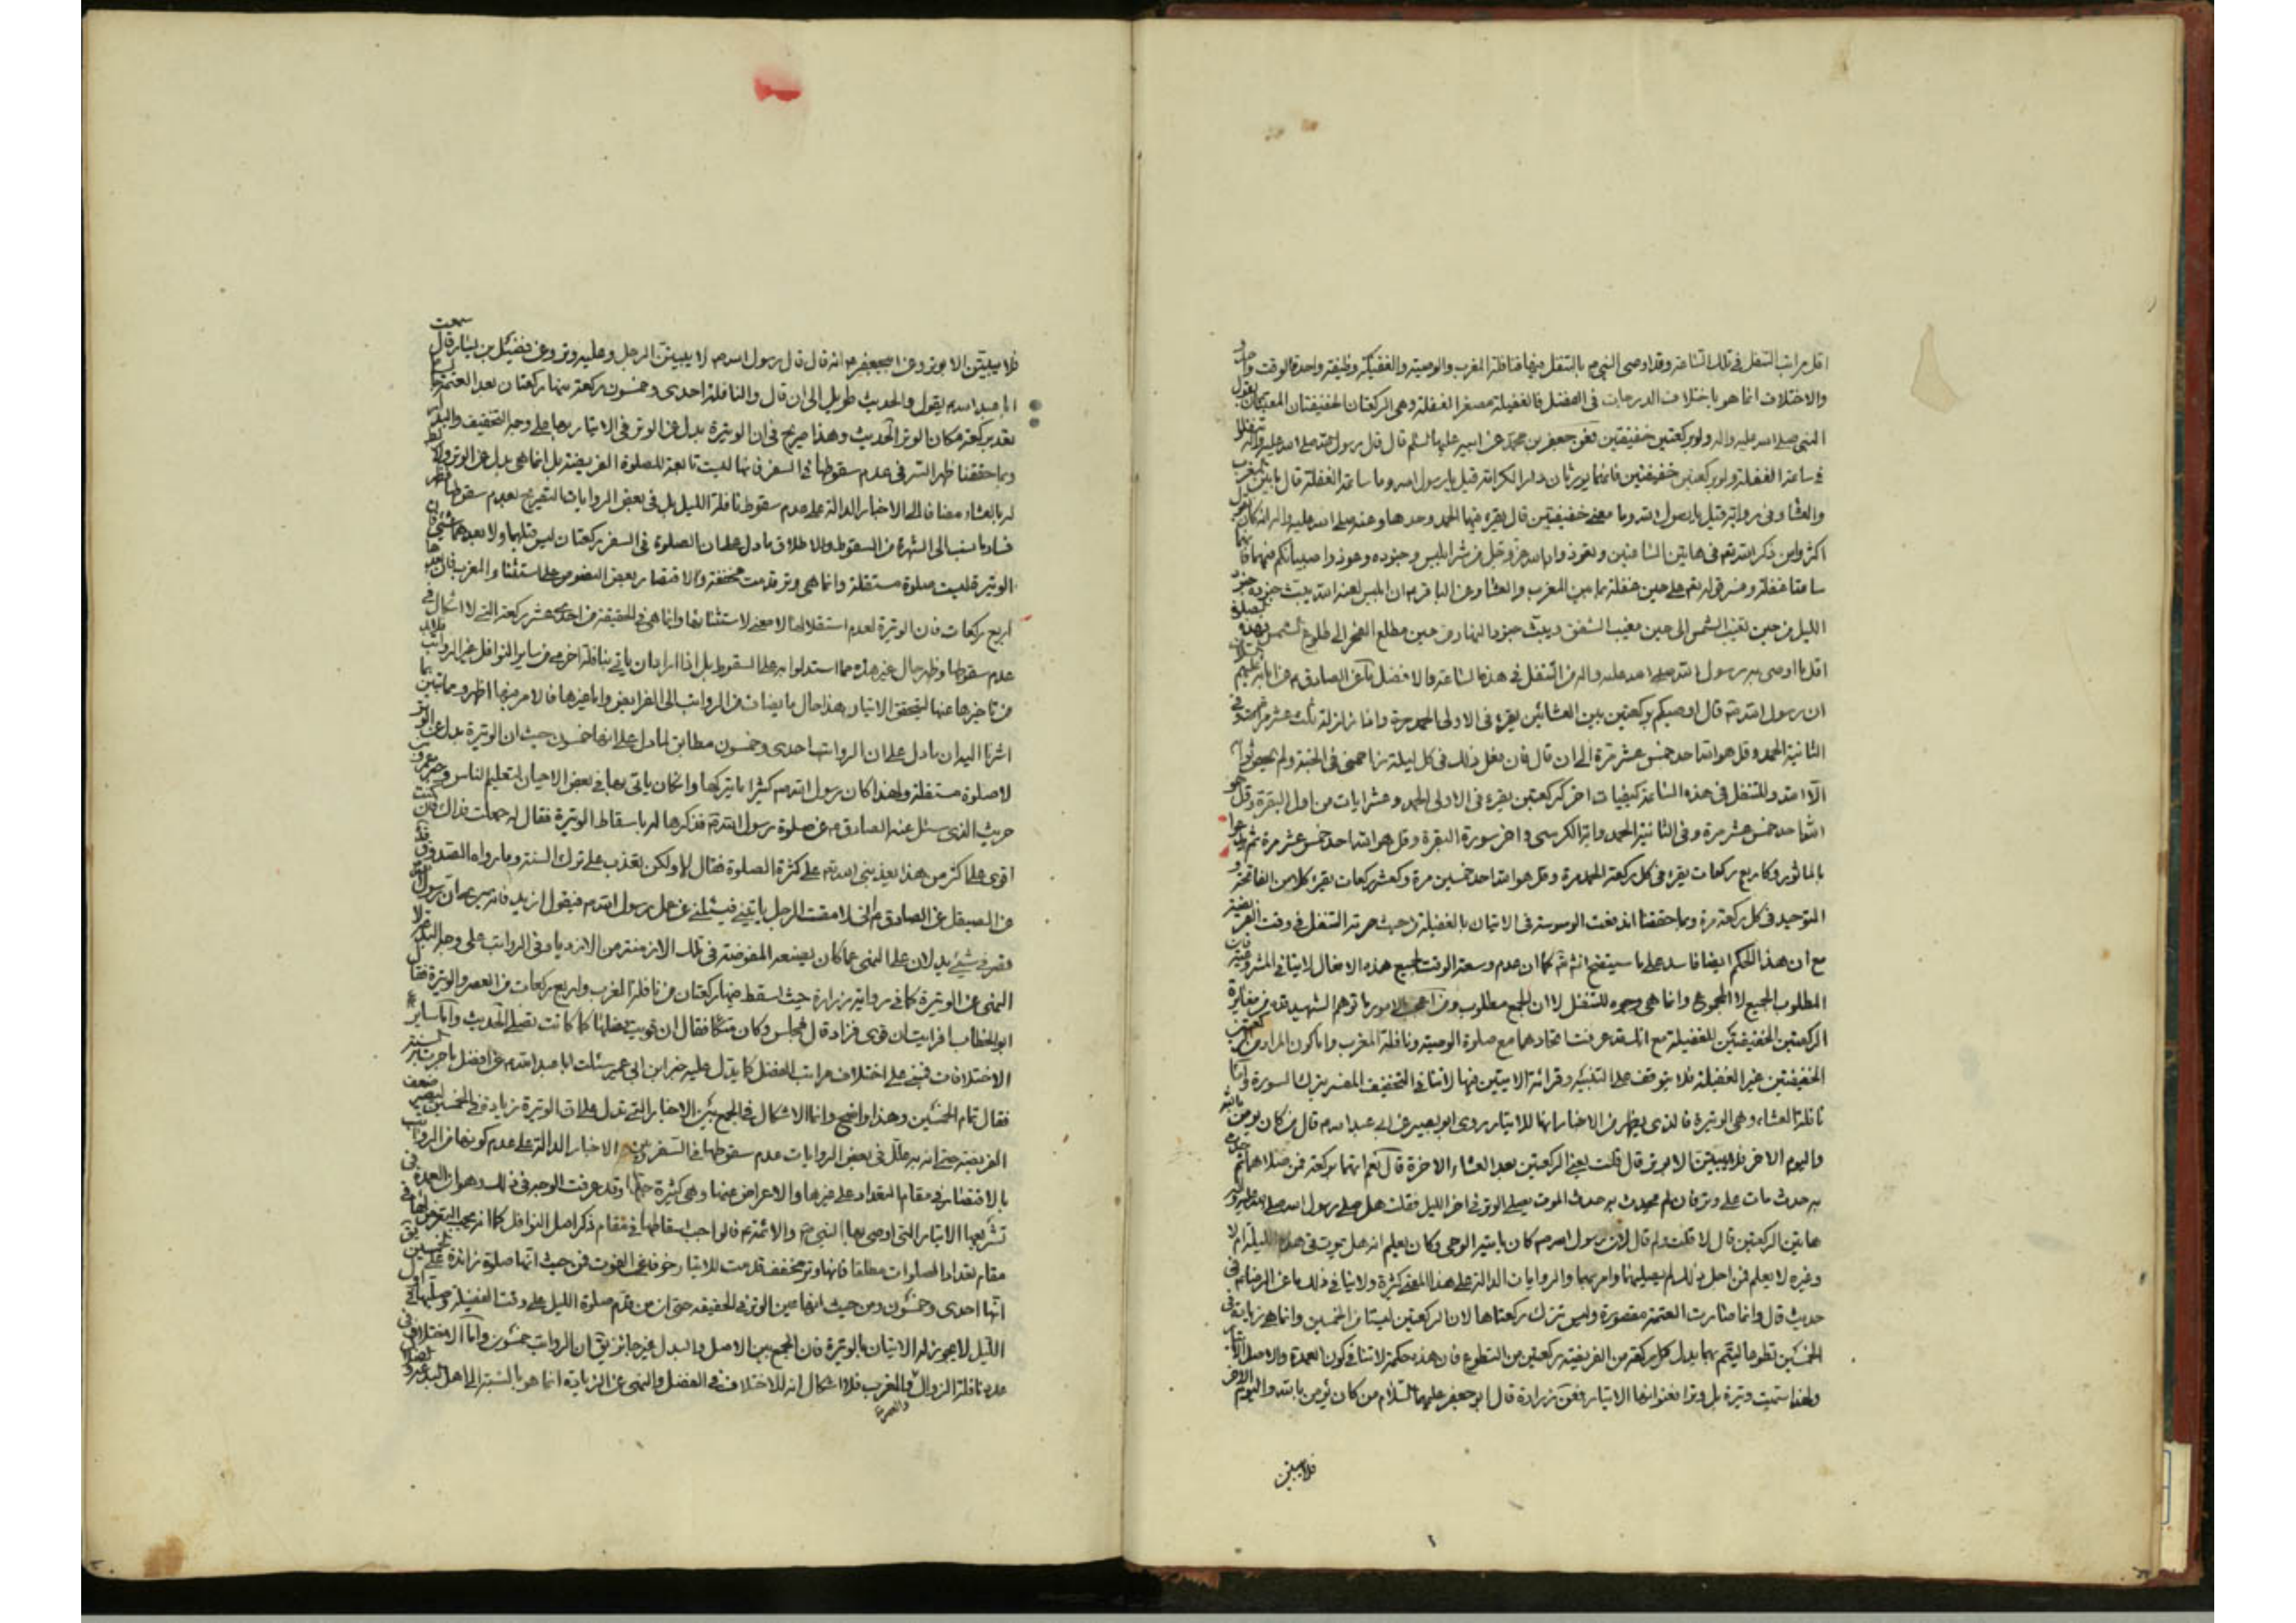 اقل مراتب التنفل في تلك الساعة وقد اوصى النبي ص بالتنفل فيها فنافلة المغرب والوصية والغفيلة وظيفة واحدة لوقت واحد
والاختلاف انما هو باختلاف الدرجات في الفضل فالغفيلة مصغر الغفلة وهي الركعتان الخفيفتان المعنيتان بقول
النبي صلى الله عليه واله ولو بركعتين خفيفتين فعن جعفر بن محمد عن ابيه عليهما السلم قال قال رسول الله صلى الله عليه واله تنفلوا
في ساعة الغفلة ولو بركعتين خفيفتين فانهما يورثان دار الكرامة قيل يا رسول الله وما ساعة الغفلة قال ما بين المغرب
والعشاء وفي رواية قيل يا رسول الله وما معنى خفيفتين قال يقرء فيهما الحمد وحدها وعنه صلى الله عليه واله انه كان يقول
اكثروا من ذكر الله تع في هاتين الساعتين وتعوذوا بالله عز وجل من شر ابليس وجنوده وعوذوا صبيانكم فيهما فانهما
ساعتا غفلة وعن الباقر ع ان ابليس لعنه الله يبث جنوده جنود
الليل من حين تغيب الشمس الى حين مغيب الشفق ويبث جنود النهار من حين مطلع الفجر الى طلوع الشمس
اقل ما اوصى به رسول الله صلى الله عليه واله من التنفل في هذه الساعة والافضل ما عن الصادق ع عن ابائه عليهم
ان رسول الله ص قال اوصيكم بركعتين بين العشائين يقرء في الاولى الحمد مرة واذا زلزلة ثلث عشر مرة وفي
الثانية الحمد وقل هو الله احد خمس عشر مرة الى ان قال فان فعل ذلك في كل ليلة زاحمني في الجنة ولم يحص ثوابه
الا الله وللتنفل في هذه الساعة كيفيات اخر كركعتين يقرء في الاولى الحمد وعشر ايات من اول البقرة وقل هو
الله احد خمس عشر مرة وفي الثانية الحمد واية الكرسي واخر سورة البقرة وقل هو الله احد خمس عشر مرة ثم يدعوا
بالماثور وكاربع ركعات يقرء في كل ركعة الحمد مرة وقل هو الله احد خمسين مرة وكعشر ركعات يقرء كلا من الفاتحة و
التوحيد في كل ركعة مرة وبما حققنا اندفعت الوسوسة في الاتيان بالغفيلة من حيث حرمة التنفل في وقت الفريضة
مع ان هذا الحكم ايضا فاسد على ما سيتضح انش كما ان عدم وسعة الوقت لجميع هذه الافعال لا ينافي المشروعية
المطلوب الجميع لا المجموع وانما هي وجوه للتنفل لا ان الجمع مطلوب ومن اعجب الامور ما توهم الشهيد قده من مغايرة
الركعتين الخفيفتين للغفيلة مع انك قد عرفت اتحادهما مع صلوة الوصية ونافلة المغرب واما كون المراد من
الخفيفتين غير الغفيلة فلا يتوقف على التشبيه وقرائة الايتين فيها لا تنافي التخفيف المفسر بترك السورة واما
نافلة العشاء وهي الوتيرة فالذي يظهر من الاخبار انها للايتار روى ابو بصير عن ابي عبد الله ع قال من كان يؤمن بالله
واليوم الاخر فلا يبيتن الا بوتر قال قلت يعني الركعتين بعد العشاء الاخرة قال نعم انهما بركعة فمن صلاهما ثم حدث
به حدث مات على وتر فان لم يحدث به حدث الموت يصلي الوتر في اخر الليل فقلت هل صلى رسول الله صلى الله عليه واله
هاتين الركعتين قال لا قلت ولم قال لان رسول الله ص كان ياتيه الوحي وكان يعلم انه هل يموت في هذه الليلة ام لا
وغيره لا يعلم فمن اجل ذلك لم يصليهما وامر بهما والروايات الدالة على هذا المعنى كثيرة ولا ينافي ذلك ما عن الرضا ع في
حديث قال وانما صارت العتمة مقصورة وليس تترك ركعتاها لان الركعتين ليستا من الخمسين وانما هي زيادة في
الخمسين تطوعا ليتم بهما بدل كل ركعة من الفريضة ركعتين من التطوع فان هذه حكمة لا تنافي كون العمدة والاصل الايتار
ولهذا سميت وتيرة بل وترا فعنوانها الايتار فعن زرارة قال ابو جعفر عليهما السلام من كان يؤمن بالله واليوم الاخر
فلا يبيتن
فلا يبيتن الا بوتر وعن ابي جعفر ع انه قال قال رسول الله ص لا يبيتن الرجل وعليه وتر وعن فضيل بن يسار قال سمعت
ابا عبد الله ع يقول والحديث طويل الى ان قال والنافلة احدى وخمسون ركعة منها ركعتان بعد العتمة
تعد بركعة مكان الوتر الحديث وهذا صريح في ان الوتيرة بدل عن الوتر في الايتار بها على وجه التخفيف والبدلية
وبما حققنا ظهر السر في عدم سقوطها في السفر فانها ليست تابعة للصلوة الفريضة بل انما هي بدل عن الوتر
له بالعشاء مضافا الى الاخبار الدالة على عدم سقوط نافلة الليل بل في بعض الروايات التصريح بعدم سقوطها
فساد ما نسب الى الشهرة من السقوط والاطلاق ما دل على ان الصلوة في السفر ركعتان ليس قبلهما ولا بعدهما شيء فان
الوتيرة ليست صلوة مستقلة وانما هي وتر قدمت مخففة والاقتصار بعض النصوص على استثناء المغرب فان بعدها
اربع ركعات فان الوتيرة لعدم استقلالها لا معنى لاستثنائها وانما هي في الحقيقة من احدى عشر ركعة التي لا اشكال في
عدم سقوطها وظهر حال غير هذه مما استدلوا به على السقوط بل اذا اراد ان ياتي بنافلة اخرى من ساير النوافل غير الرواتب فلابد
من تاخيرها عنها ليتحقق الايتار هذا حال ما يضاف من الرواتب الى الفرايض واما غيرها فالامر فيها اظهر وبما تبين مما
اشرنا اليه ان ما دل على ان الرواتب احدى وخمسون مطابق لما دل على انها خمسون حيث ان الوتيرة بدل عن الوتر
لا صلوة مستقلة ولهذا كان رسول الله ص كثيرا ما يتركها وان كان ياتي بها في بعض الاحيان لتعليم الناس
حريث الذي سئل عنه الصادق ع عن صلوة رسول الله ص فذكرها له باسقاط الوتيرة فقال له جعلت فداك فان كنت
اقوى على اكثر من هذا يعذبني الله تع على كثرة الصلوة فقال لا ولكن يعذب على ترك السنة وما رواه الصدوق
عن الصيقل عن الصادق ع اني لامقت الرجل ياتيني فيسئلني عن عمل رسول الله ص فيقول ازيد فانه يرى ان رسول الله
قصر في شيء يدلان على النهي عما كان يصنعه المفوضة في تلك الازمنة من الازدياد في الرواتب على وجه البدعة لا
النهي عن الوتيرة كما في رواية زرارة حيث اسقط منها ركعتان من نافلة المغرب واربع ركعات من العصر والوتيرة فقال
ابو الخطاب افرايت ان قوى فزاد قال فجلس وكان متكئا فقال ان قويت فصلها كما كانت تصلى الحديث واما ساير
الاختلافات فمبني على اختلاف مراتب الفضل كما يدل عليه خبر ابن ابي عمير سئلت ابا عبد الله ع عن افضل ما جرت به السنة
فقال تمام الخمسين وهذا واضح وانما الاشكال في الجمع بين الاخبار التي تدل على ان الوتيرة زيادة في الخمسين
الفريضة حتى انه علل في بعض الروايات عدم سقوطها في السفر الاخبار الدالة على عدم كونها من الرواتب
بالاقتصار في مقام التعداد على غيرها والاعراض عنها وهي كثيرة جدا وقد عرفت الوجه في ذلك وهو ان العمدة في
تشريعها الايتار التي اوصى بها النبي ص والائمة ع فالواجب اسقاطها في مقام ذكر اصل النوافل كما انه يجب التعرض لها في
مقام تعداد الصلوات مطلقا فانها وتر مخفف قدمت للايتار خوفا عن الفوت فمن حيث انها صلوة زائدة على الخمسين
انها احدى وخمسون ومن حيث انها عين الوتر في الحقيقة حتى ان من قدم صلوة الليل على وقت الفضيلة وصليها في اول
الليل لا يجوز له الاتيان بالوتيرة فان الجمع بين الاصل والبدل غير جائز يق ان الرواتب خمسون واما الاختلاف في
عدد نافلة الزوال والعصر والمغرب فلا اشكال انه للاختلاف في الفضل والنهي عن الزيادة انما هو بالنسبة الى اهل البدع